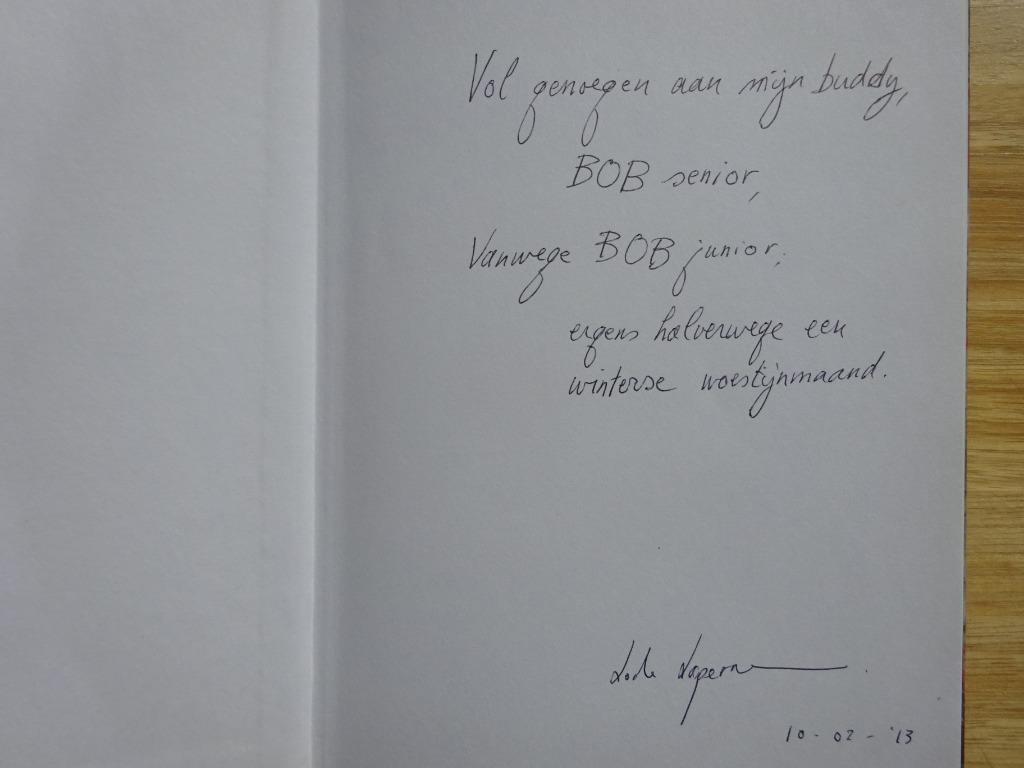 Vol genoegen aan mijn buddy,
BOB senior,
Vanwege BOB junior,
ergens halverwege een
winterse woestijnmaand.
10-02-'13